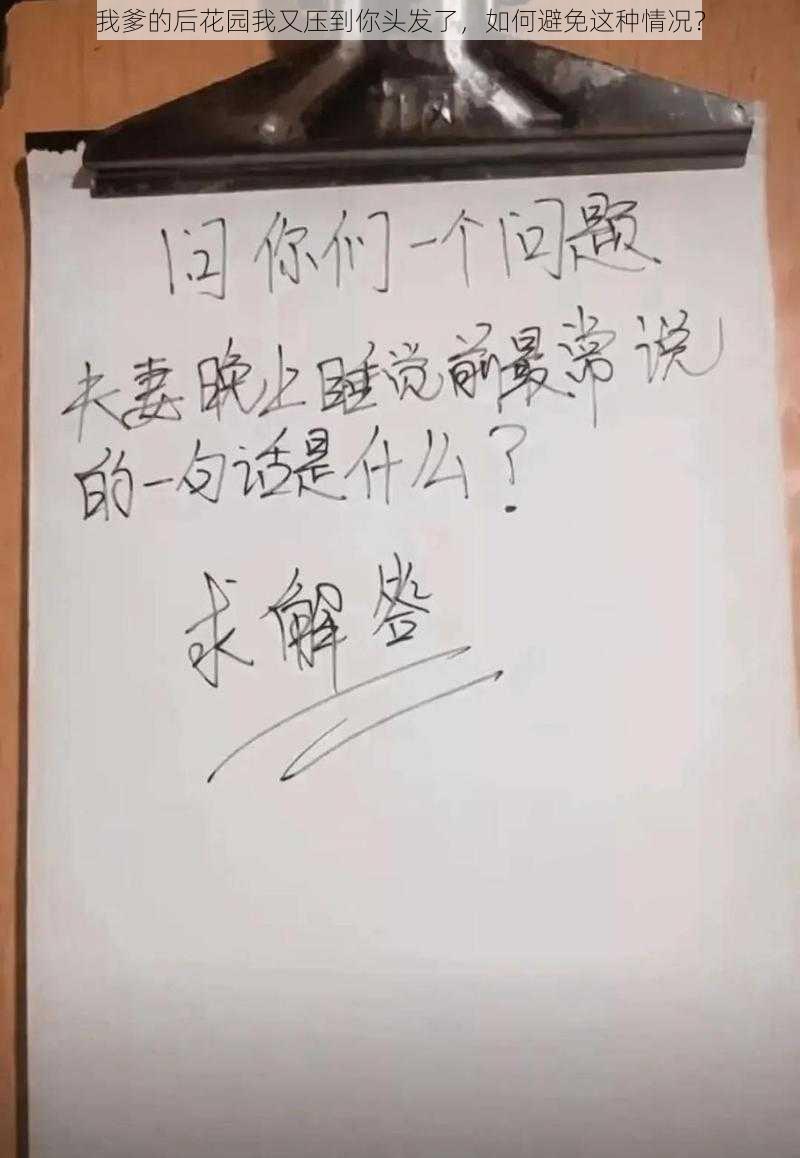 我爹的后花园我又压到你头发了，如何避免这种情况？
问你们一个问题
夫妻晚上睡觉前最常说
的一句话是什么？
求解答